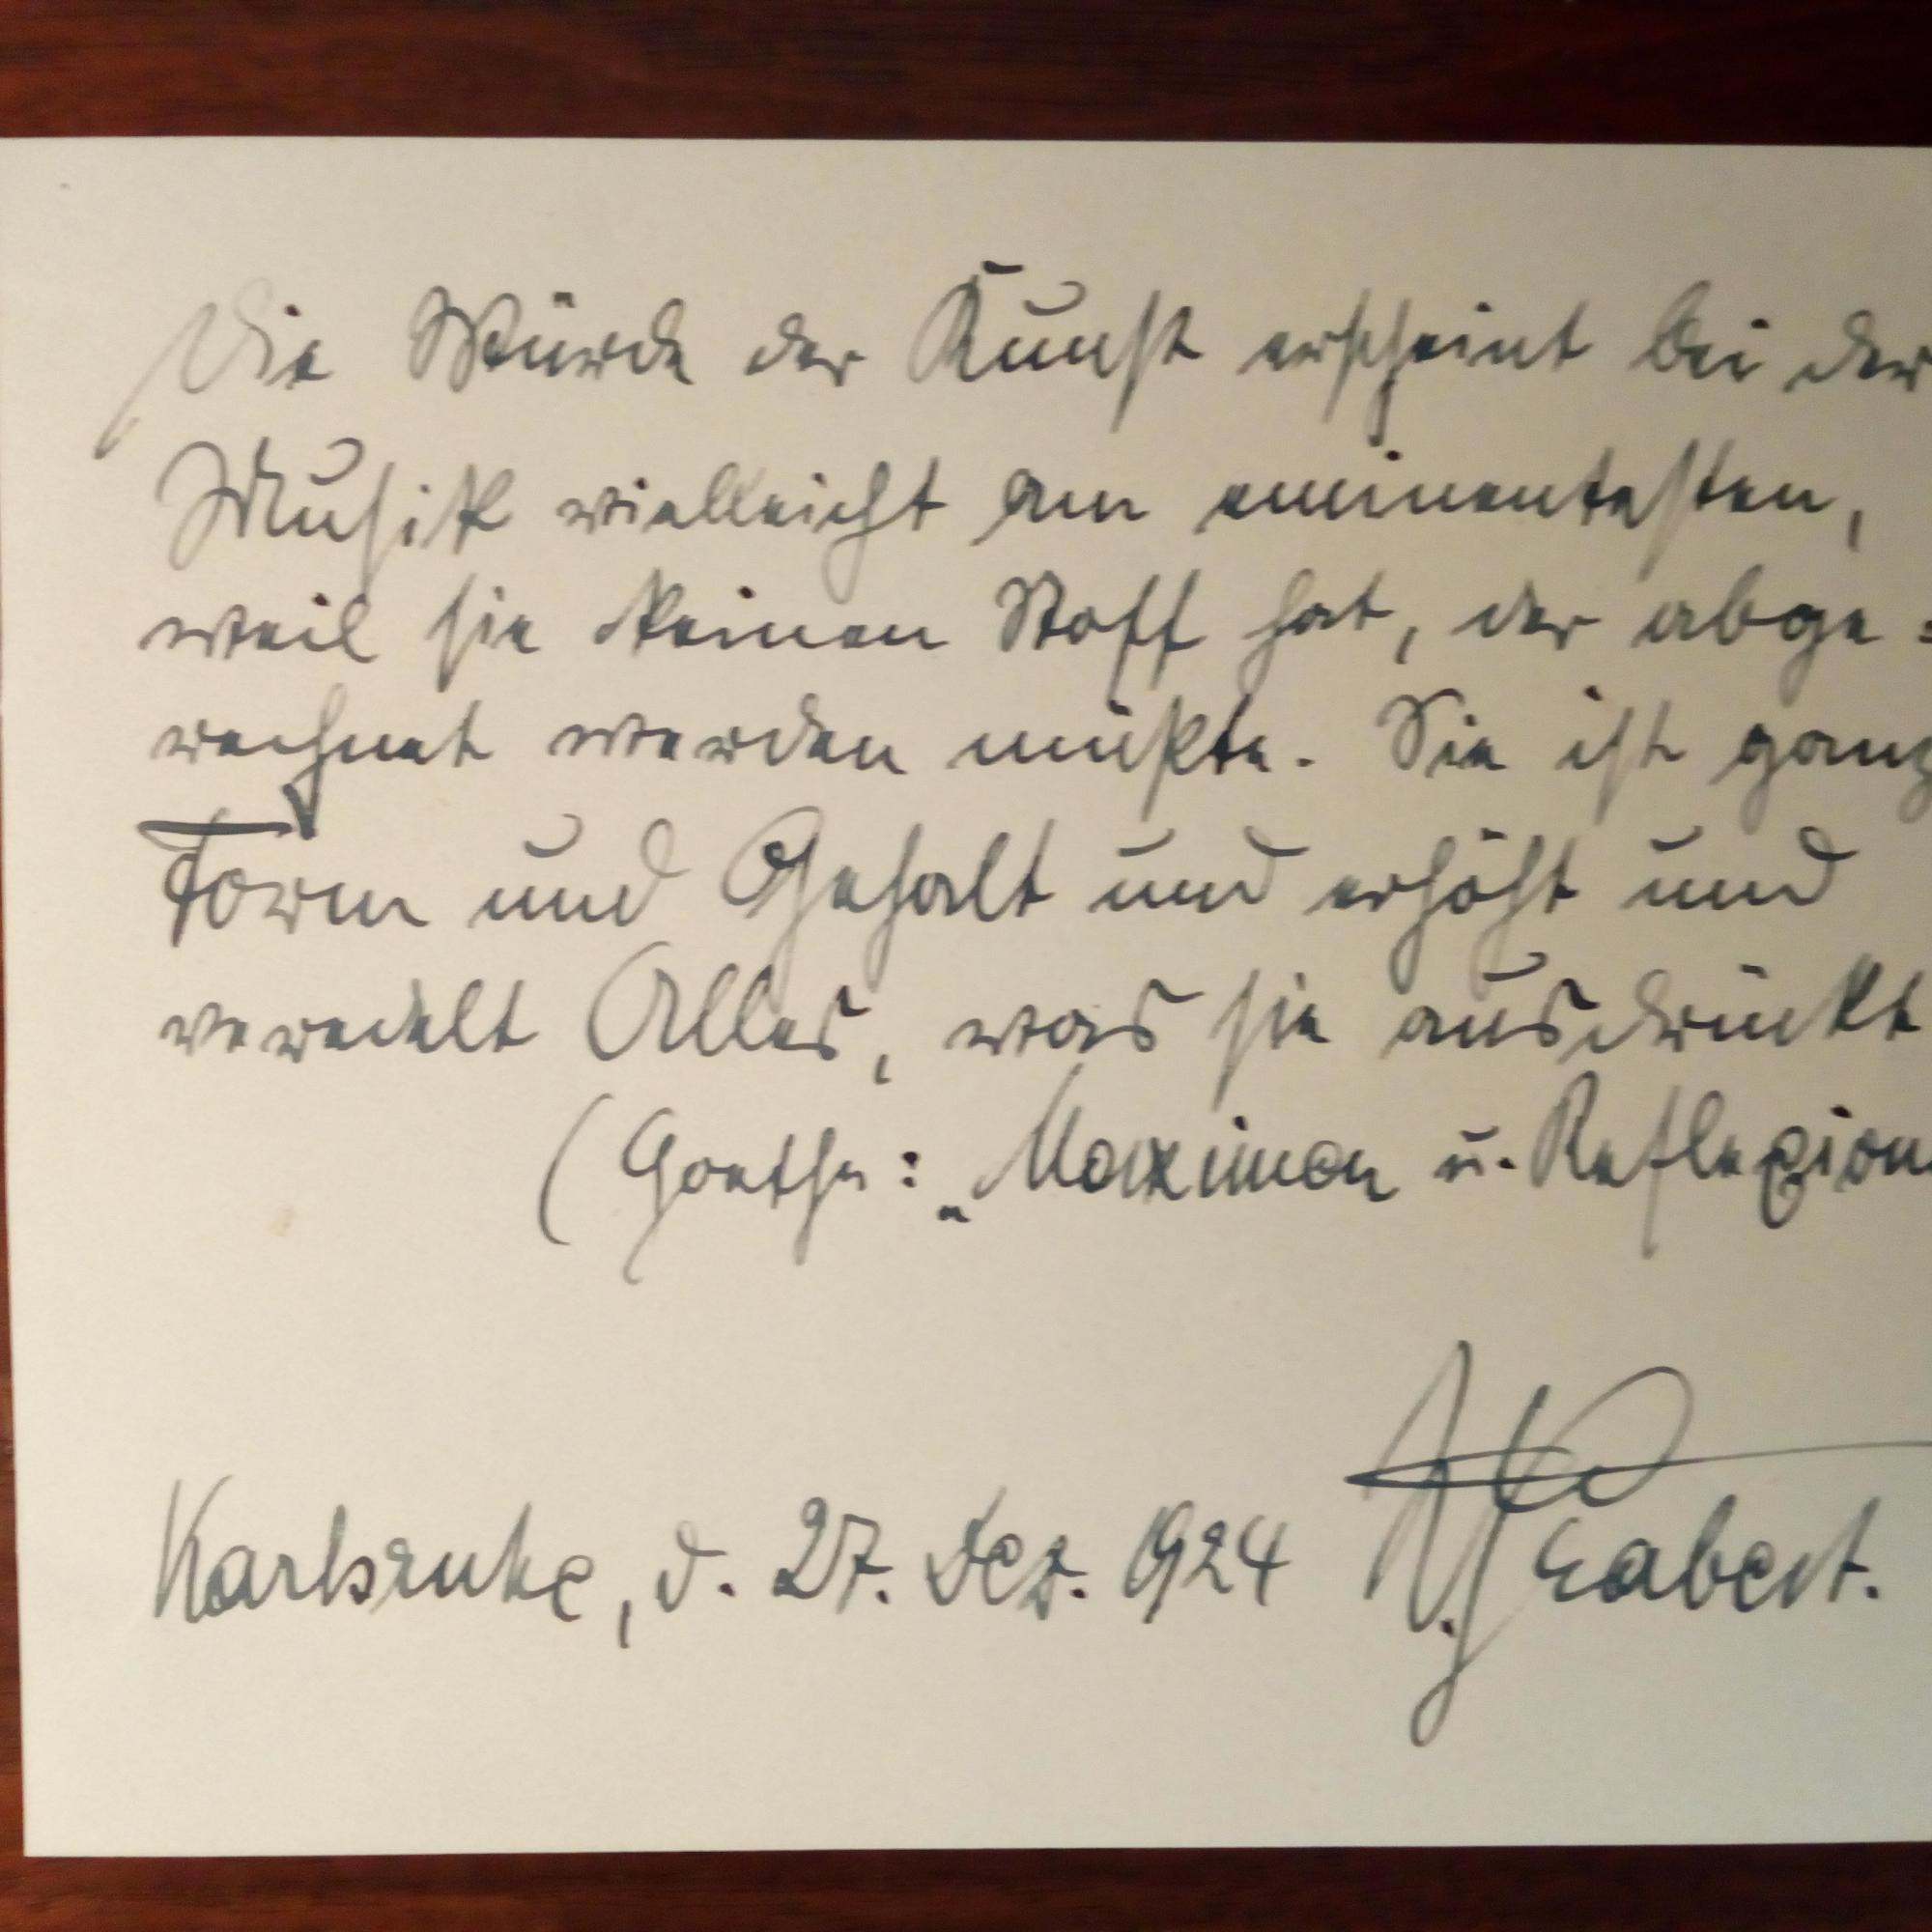 Die Würde der Kunst erscheint bei der
Musik vielleicht am eminentesten,
weil sie keinen Stoff hat, der abge=
rechnet werden müßte. Sie ist ganz
Form und Gehalt und erhöht und
veredelt Alles, was sie ausdrückt
(Goethe: „Maximen u. Reflexion
Karlsruhe, d. 27. Dez. 1924